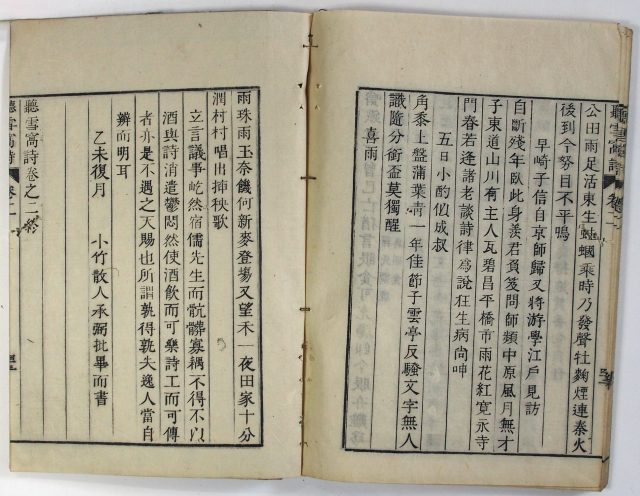 公田雨足活東生蛙蟈乘時乃發聲牡麴煙連秦火
後到今努目不平鳴
早崎子信自京師歸又將游學江戶見訪
自斷殘年臥此身羨君負笈問師頻中原風月無才
子東道山川有主人瓦碧昌平橋市雨花紅寬永寺
門春若逢諸老談詩律為說狂生病尚呻
五日小酌似成叔
角黍上盤蒲葉青一年佳節子雲亭反騷文字無人
識隨分銜盃莫獨醒
喜雨
雨珠雨玉奈饑何新麥登場又望禾一夜田家十分
潤村村唱出揷秧歌
立言議事屹然宿儒先生而骯髒寡耦不得不以
酒與詩消遣鬱悶然使酒飲而可樂詩工而可傳
者亦是不遇之天賜也所謂孰得孰失逸人當自
辨而明耳
乙未復月　小竹散人承弼批畢而書
聽雪窩詩卷之二終
聽雪窩詩　卷二